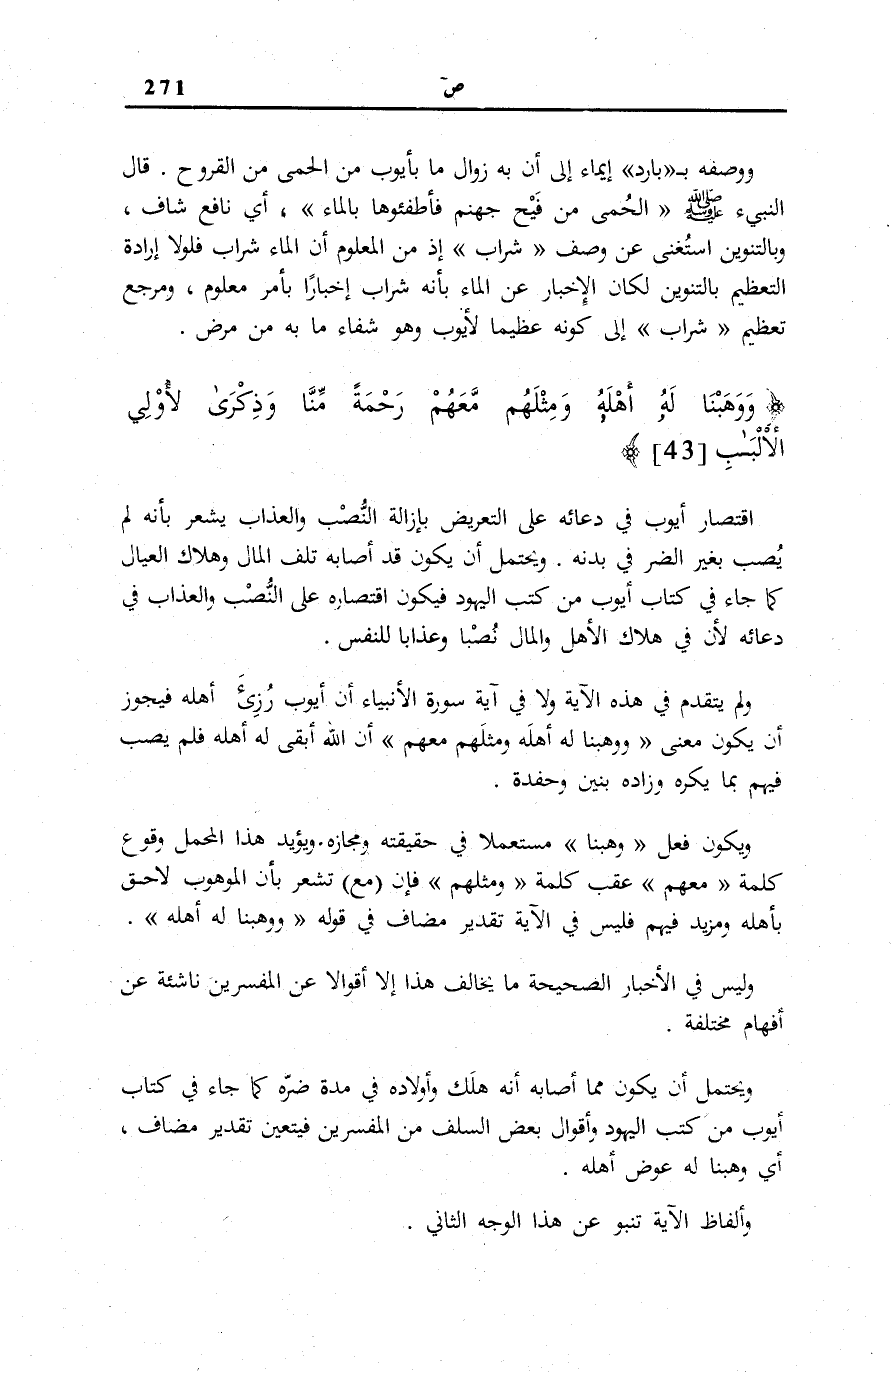 271 صۤ
ووصفه بـ«بارد» إيماء إلى أن به زوال ما بأيوب من الحمى من القروح . قال
النبيء ﷺ « الحُمى من فَيْح جهنم فأطفئوها بالماء » ، أي نافع شاف ،
وبالتنوين استُغنى عن وصف « شراب » إذ من المعلوم أن الماء شراب فلولا إرادة
التعظيم بالتنوين لكان الإخبار عن الماء بأنه شراب إخبارًا بأمر معلوم ، ومرجع
تعظيم « شراب » إلى كونه عظيما لأيوب وهو شفاء ما به من مرض .
﴿ وَوَهَبْنَا لَهُۥ أَهْلَهُۥ وَمِثْلَهُم مَّعَهُمْ رَحْمَةً مِّنَّا وَذِكْرَىٰ لأُوْلِي
الْأَلْبَـٰبِ [43] ﴾
اقتصار أيوب في دعائه على التعريض بإزالة النُّصْب والعذاب يشعر بأنه لم
يُصب بغير الضر في بدنه . ويحتمل أن يكون قد أصابه تلف المال وهلاك العيال
كما جاء في كتاب أيوب من كتب اليهود فيكون اقتصاره على النُّصْب والعذاب في
دعائه لأن في هلاك الأهل والمال نُصْبا وعذابا للنفس .
ولم يتقدم في هذه الآية ولا في آية سورة الأنبياء أن أيوب رُزِئَ أهله فيجوز
أن يكون معنى « ووهبنا له أهلَه ومثلَهم معهم » أن الله أبقى له أهله فلم يصب
فيهم بما يكره وزاده بنين وحفدة .
ويكون فعل « وهبنا » مستعملا في حقيقته ومجازه.ويؤيد هذا المحمل وقوع
كلمة « معهم » عقب كلمة « ومثلهم » فإن (مع) تشعر بأن الموهوب لاحق
بأهله ومزيد فيهم فليس في الآية تقدير مضاف في قوله « ووهبنا له أهله » .
وليس في الأخبار الصحيحة ما يخالف هذا إلا أقوالا عن المفسرين ناشئة عن
أفهام مختلفة .
ويحتمل أن يكون مما أصابه أنه هلَك وأولاده في مدة ضرّه كما جاء في كتاب
أيوب من كتب اليهود وأقوال بعض السلف من المفسرين فيتعين تقدير مضاف ،
أي وهبنا له عوض أهله .
وألفاظ الآية تنبو عن هذا الوجه الثاني .